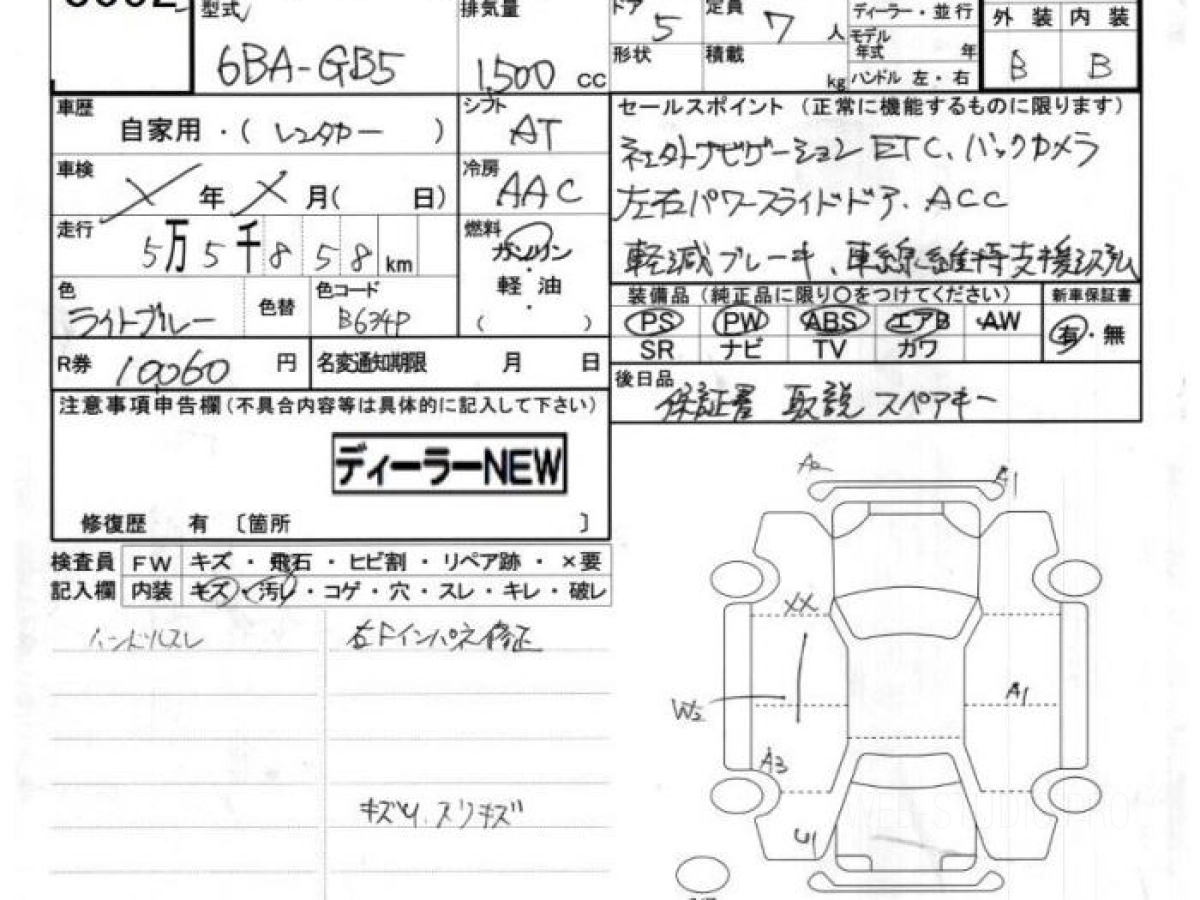 型式 排気量 ドア 5 定員 7 人 ディーラー・並行 外装 内装
6BA-GB5 1,500 cc 形状 積載 kg モデル年式 年 ハンドル 左・右 B B
車歴 自家用・( レンタカー ) シフト AT
車検 X 年 X 月( 日) 冷房 AAC
走行 5万5千858km 燃料 ガソリン・軽油・( )
色 ライトブルー 色替 色コード B634P
R券 10,060 円 名変通知期限 月 日
セールスポイント (正常に機能するものに限ります)
社外ナビゲーション ETC、バックカメラ
左右パワースライドドア、ACC
軽減ブレーキ、車線維持支援システム
装備品(純正品に限り○をつけてください) 新車保証書
PS PW ABS エアB AW 有・無
SR ナビ TV カワ
後日品
保証書 取説 スペアキー
注意事項申告欄(不具合内容等は具体的に記入して下さい)
ディーラーNEW
修復歴 有 〔箇所 〕
検査員 FW キズ・飛石・ヒビ割・リペア跡・×要
記入欄 内装 キズ・汚レ・コゲ・穴・スレ・キレ・破レ
ハンドルスレ 右Fインパネ修正
キズU、スリキズ
A2 A1
XX
W2 A1
A3
U1